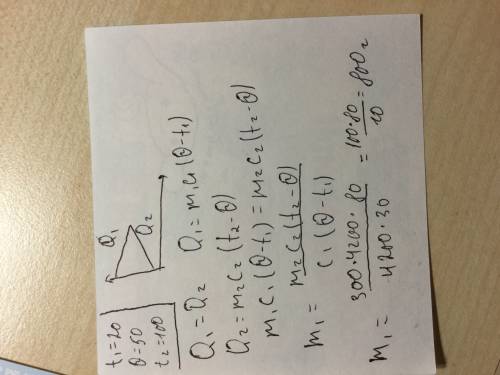 t₁=20
θ=50
t₂=100
Q₁
Q₂
Q₁=Q₂ Q₁=m₁c₁(θ-t₁)
Q₂=m₂c₂(t₂-θ)
m₁c₁(θ-t₁)=m₂c₂(t₂-θ)
m₁= m₂c₂(t₂-θ) / c₁(θ-t₁)
m₁= 300·4200·80 / 4200·30 = 100·80 / 10 = 800г